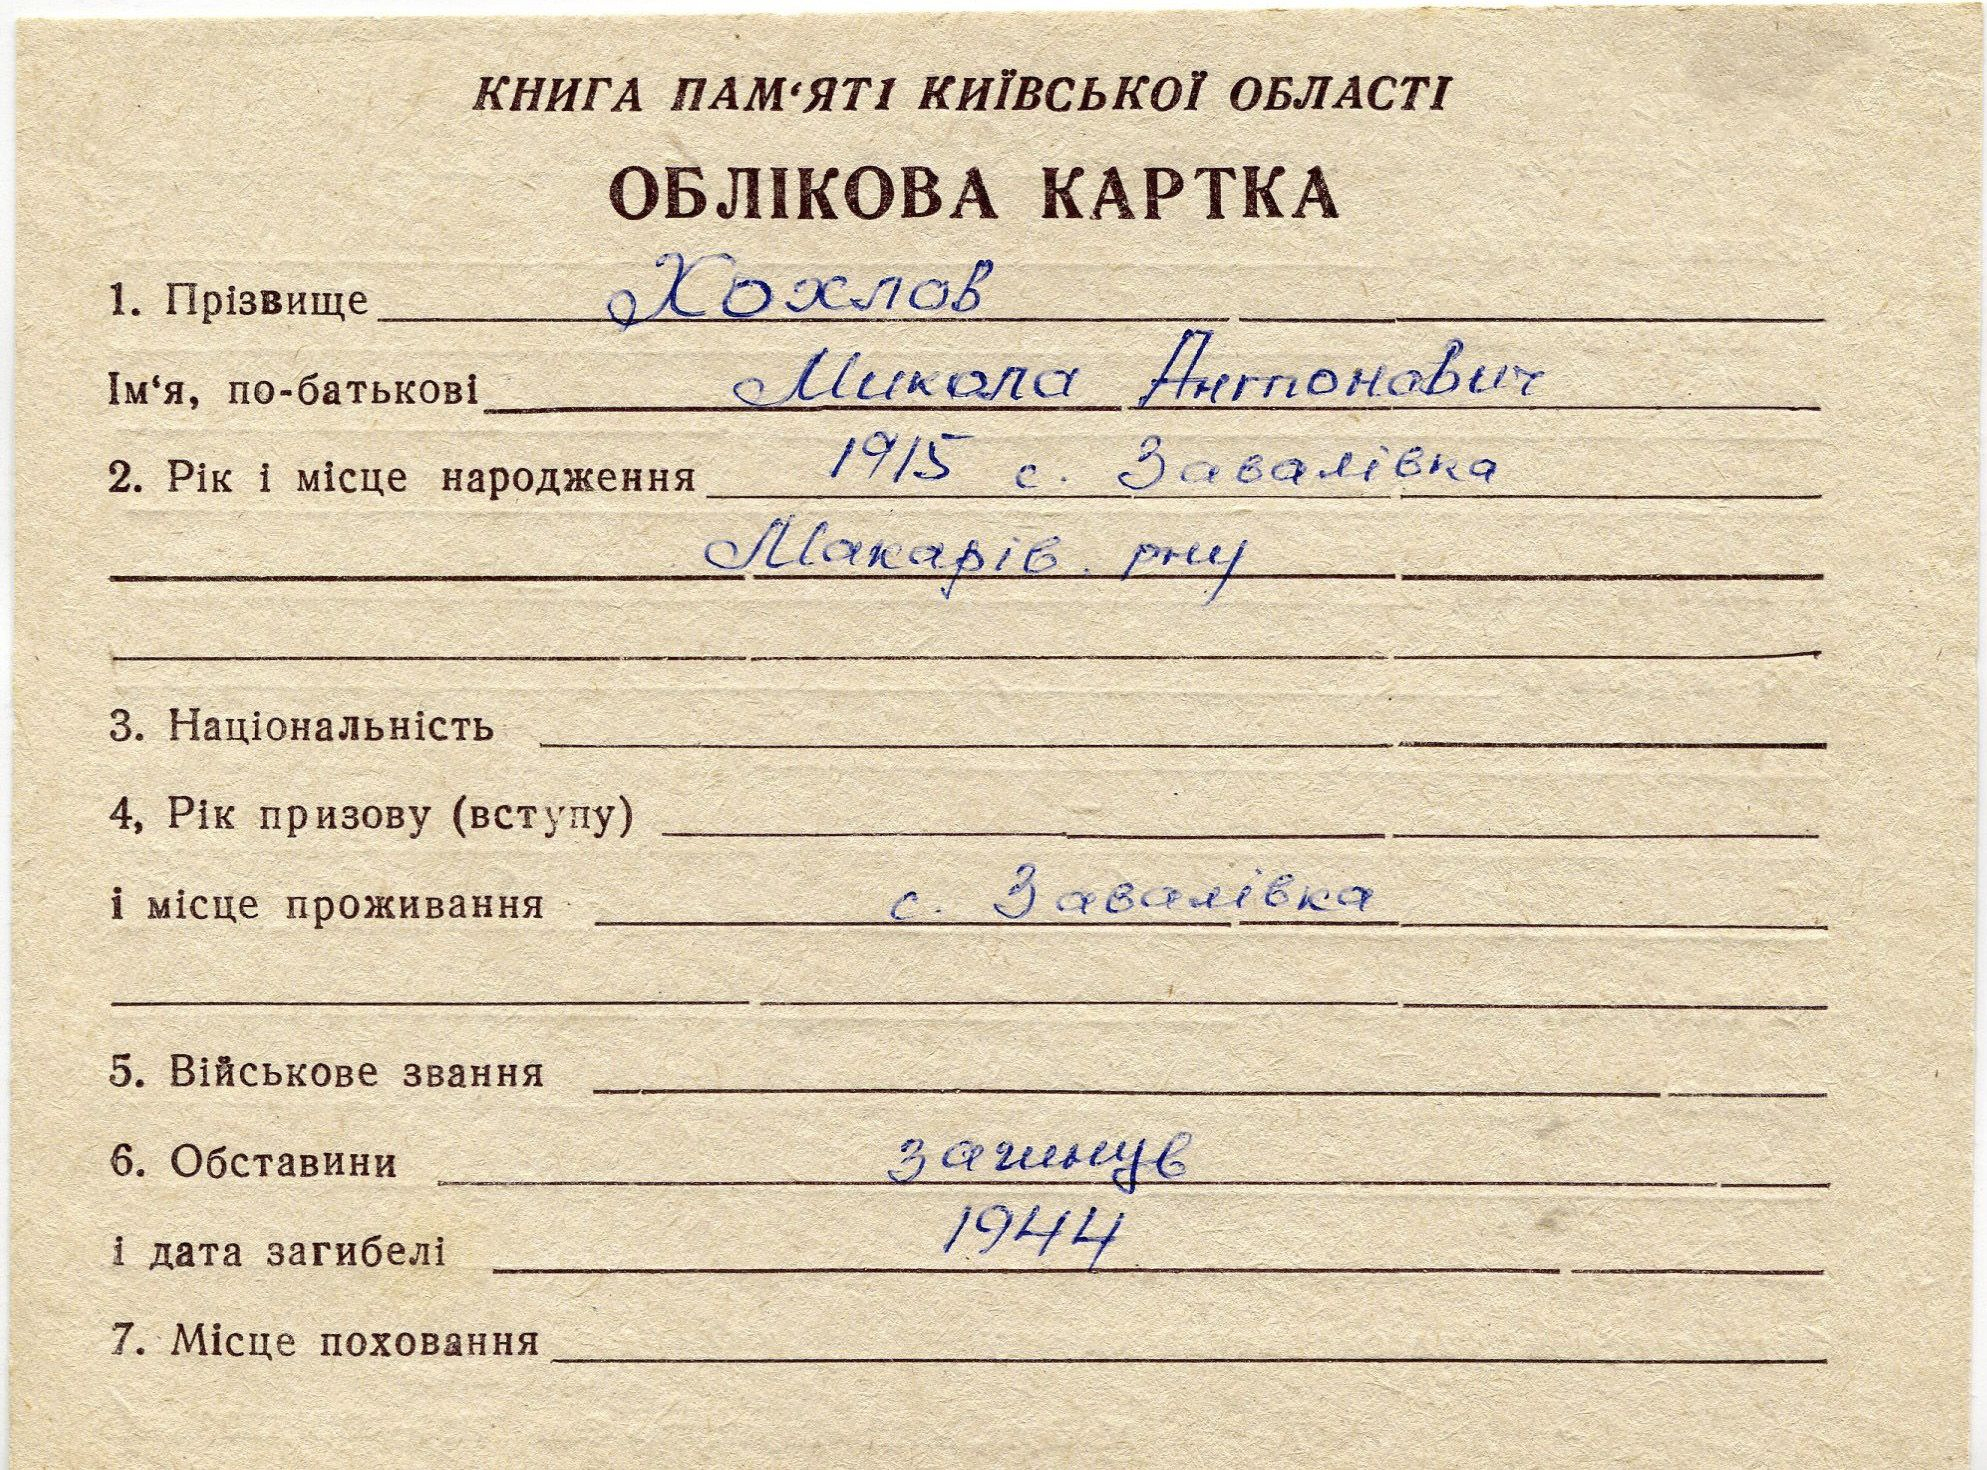 КНИГА ПАМ‘ЯТІ КИЇВСЬКОЇ ОБЛАСТІ
ОБЛІКОВА КАРТКА
1. Прізвище Хохлов
Ім‘я, по-батькові Микола Антонович
2. Рік і місце народження 1915 с. Завалівка
Макарів. рну
3. Національність
4, Рік призову (вступу)
і місце проживання с. Завалівка
5. Військове звання
6. Обставини загинув
і дата загибелі 1944
7. Місце поховання